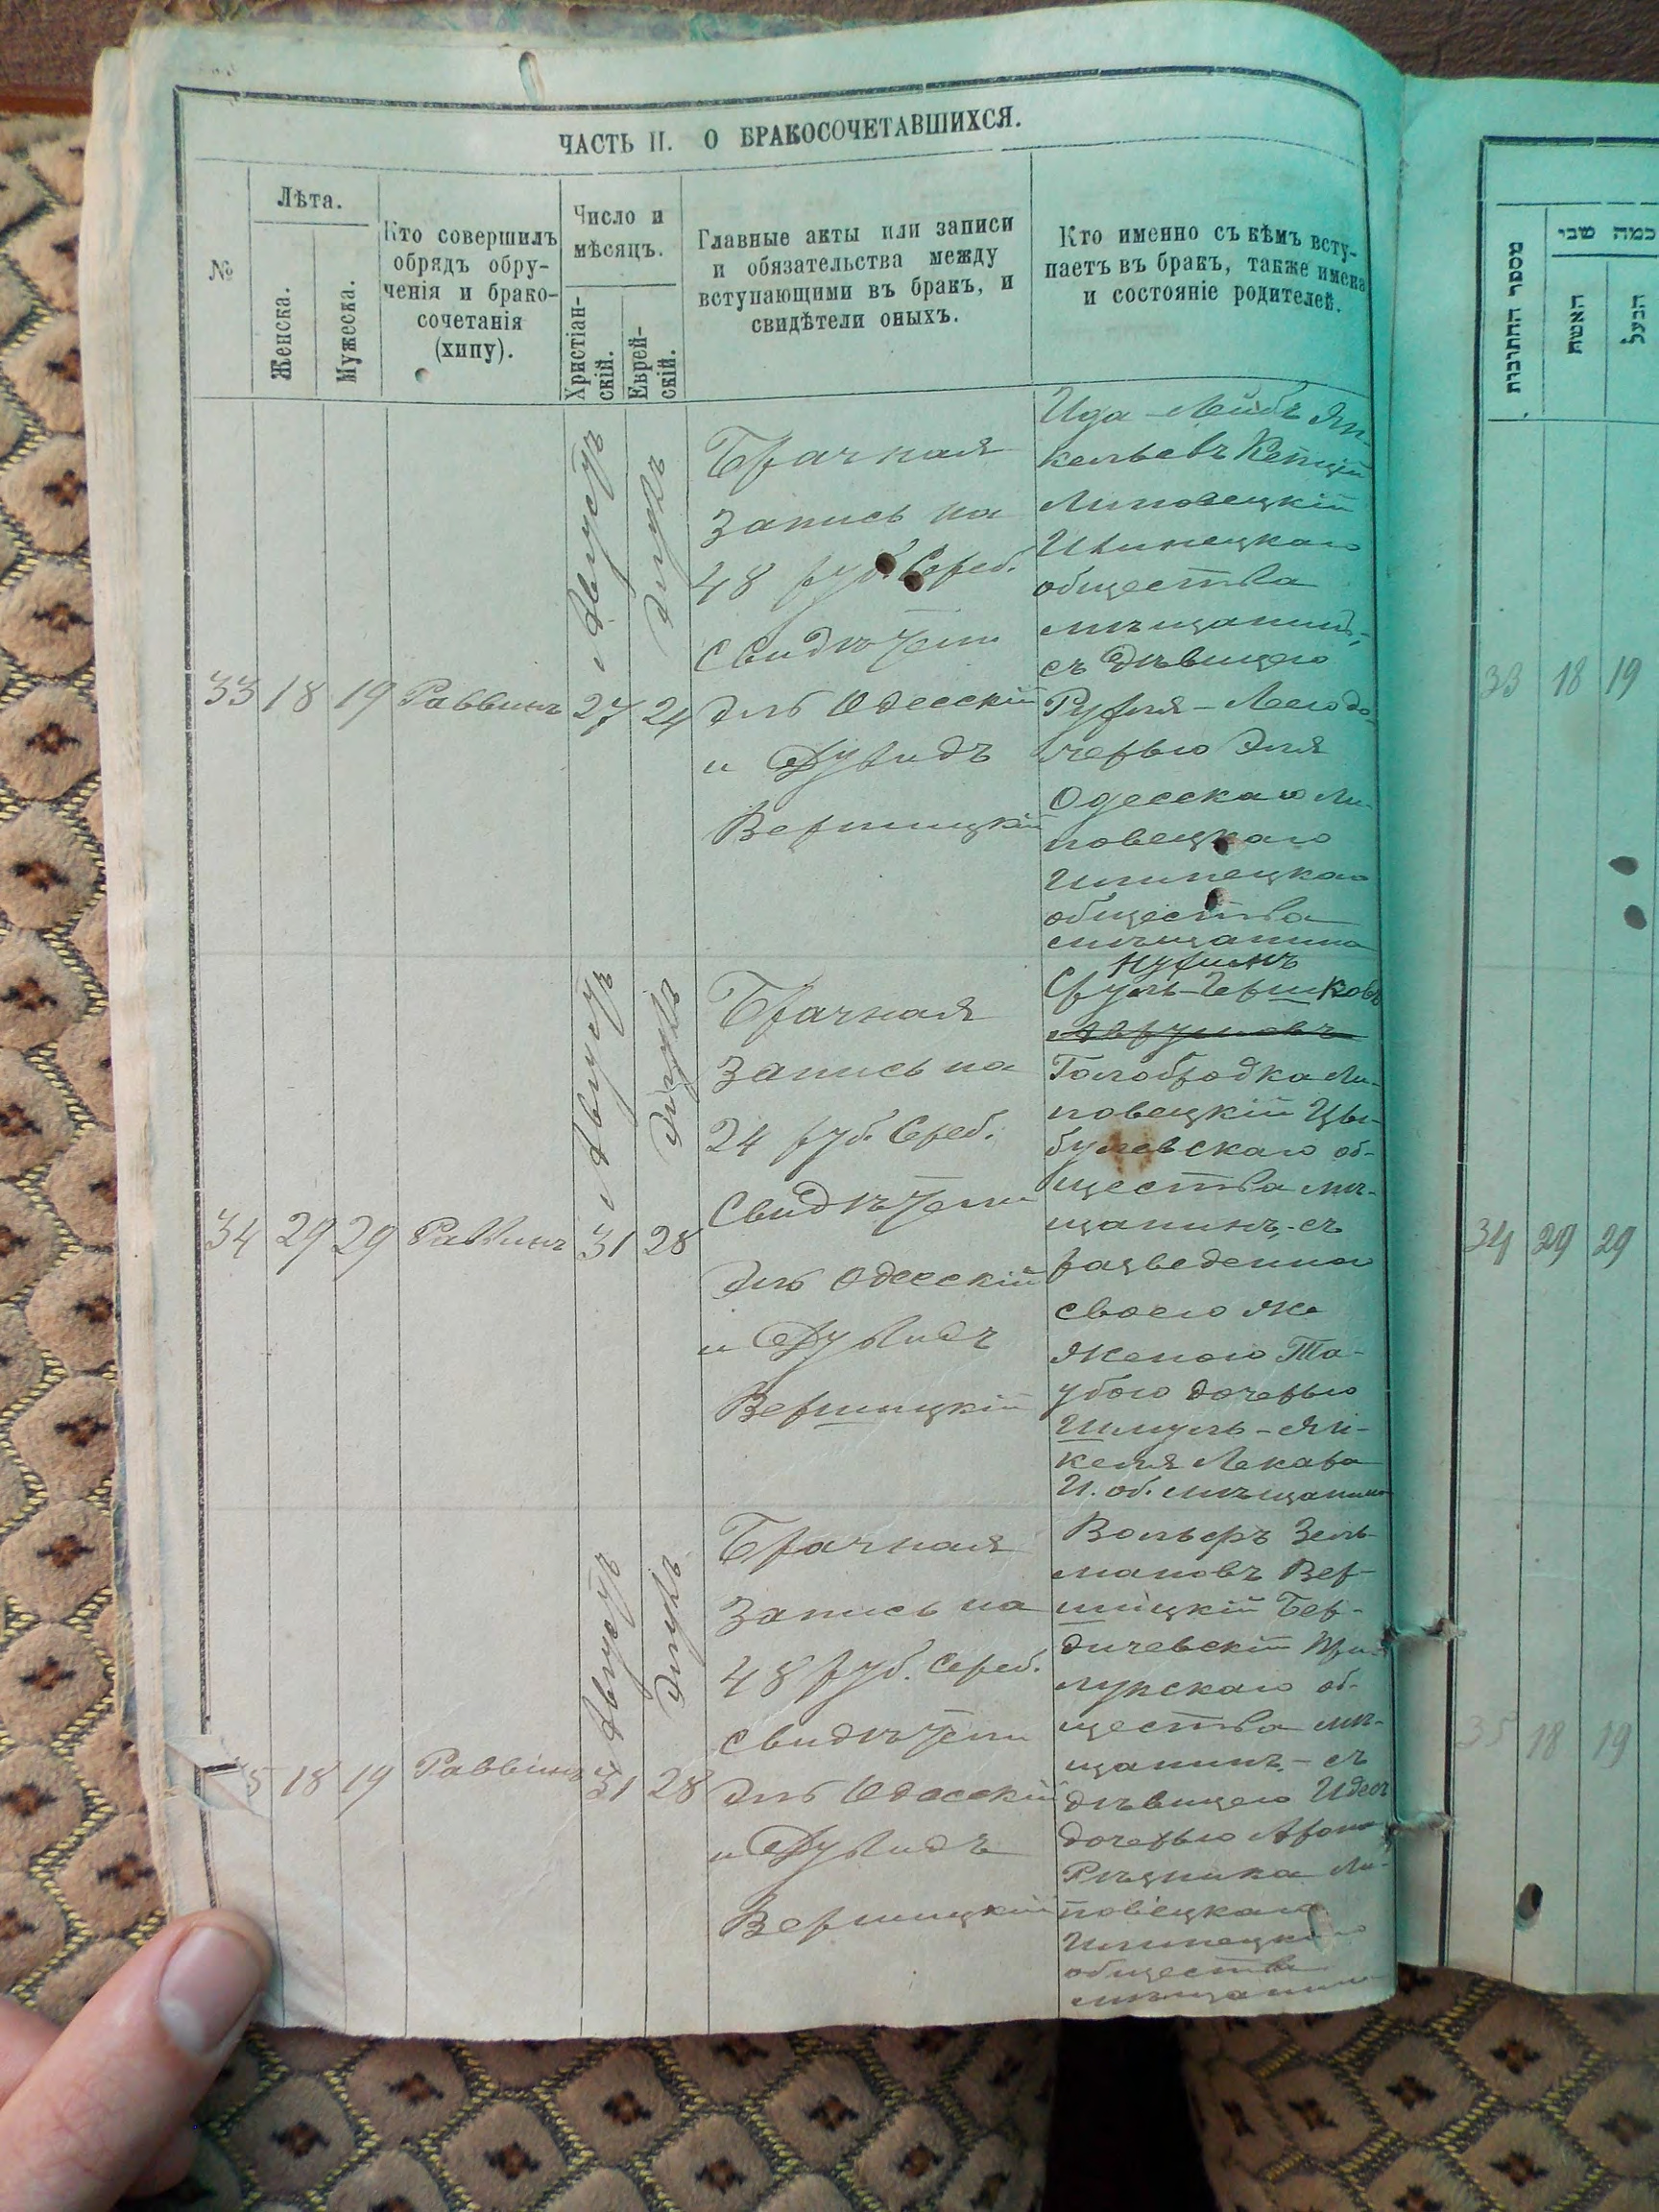 ЧАСТЬ II. О БРАКОСОЧЕТАВШИХСЯ.
№
Лѣта.
Женска.
Мужеска.
Кто совершилъ
обрядъ обру-
ченія и брако-
сочетанія
(хипу).
Число и
мѣсяцъ.
Христіан-
скій.
Еврей-
скій.
Главные акты или записи
и обязательства между
вступающими въ бракъ, и
свидѣтели оныхъ.
Кто именно съ кѣмъ всту-
паетъ въ бракъ, также имена
и состояніе родителей.
33
18
19
Раввинъ
Августъ
27
Элулъ
24
Брачная
Запись на
48 руб. Сереб.
Свидѣтели
Эль Одесскій
и Дувидъ
Вершицкій
Ида-Лейбъ Ян-
кельевъ
Липовецкій
Илинецкаго
общества
мѣщанинъ,
съ дѣвицею
Рухля-Леею до-
черью Эля
Одесскаго Ли-
повецкаго
Илинецкаго
общества
мѣщанина
34
29
29
Раввинъ
Августъ
31
Элулъ
28
Брачная
Запись на
24 руб. Сереб.
Свидѣтели
Эль Одесскій
и Дувидъ
Вершицкій
Нухимъ
Сруль-Гершковъ
Аврумовъ
Голобродка Ли-
повецкій Цы-
булевскаго об-
щества мѣ-
щанинъ, съ
разведенною
своею же
женою Та-
убою дочерью
Шмуль-Ян-
келя Лекаря
И. об. мѣщанина
35
18
19
Раввинъ
Августъ
31
Элулъ
28
Брачная
Запись на
48 руб. Сереб.
Свидѣтели
Эль Одесскій
и Дувидъ
Вершицкій
Вольфъ Зель-
мановъ Вер-
шицкій Бер-
дичевскій При-
лукскаго об-
щества мѣ-
щанинъ - съ
дѣвицею
дочерью Арона
Рѣзника Ли-
повецкаго
Илинецкаго
общества
мѣщанина
מספר החתונות
כמה שני
האשה
הבעל
33 18 19
34 29 29
35 18 19